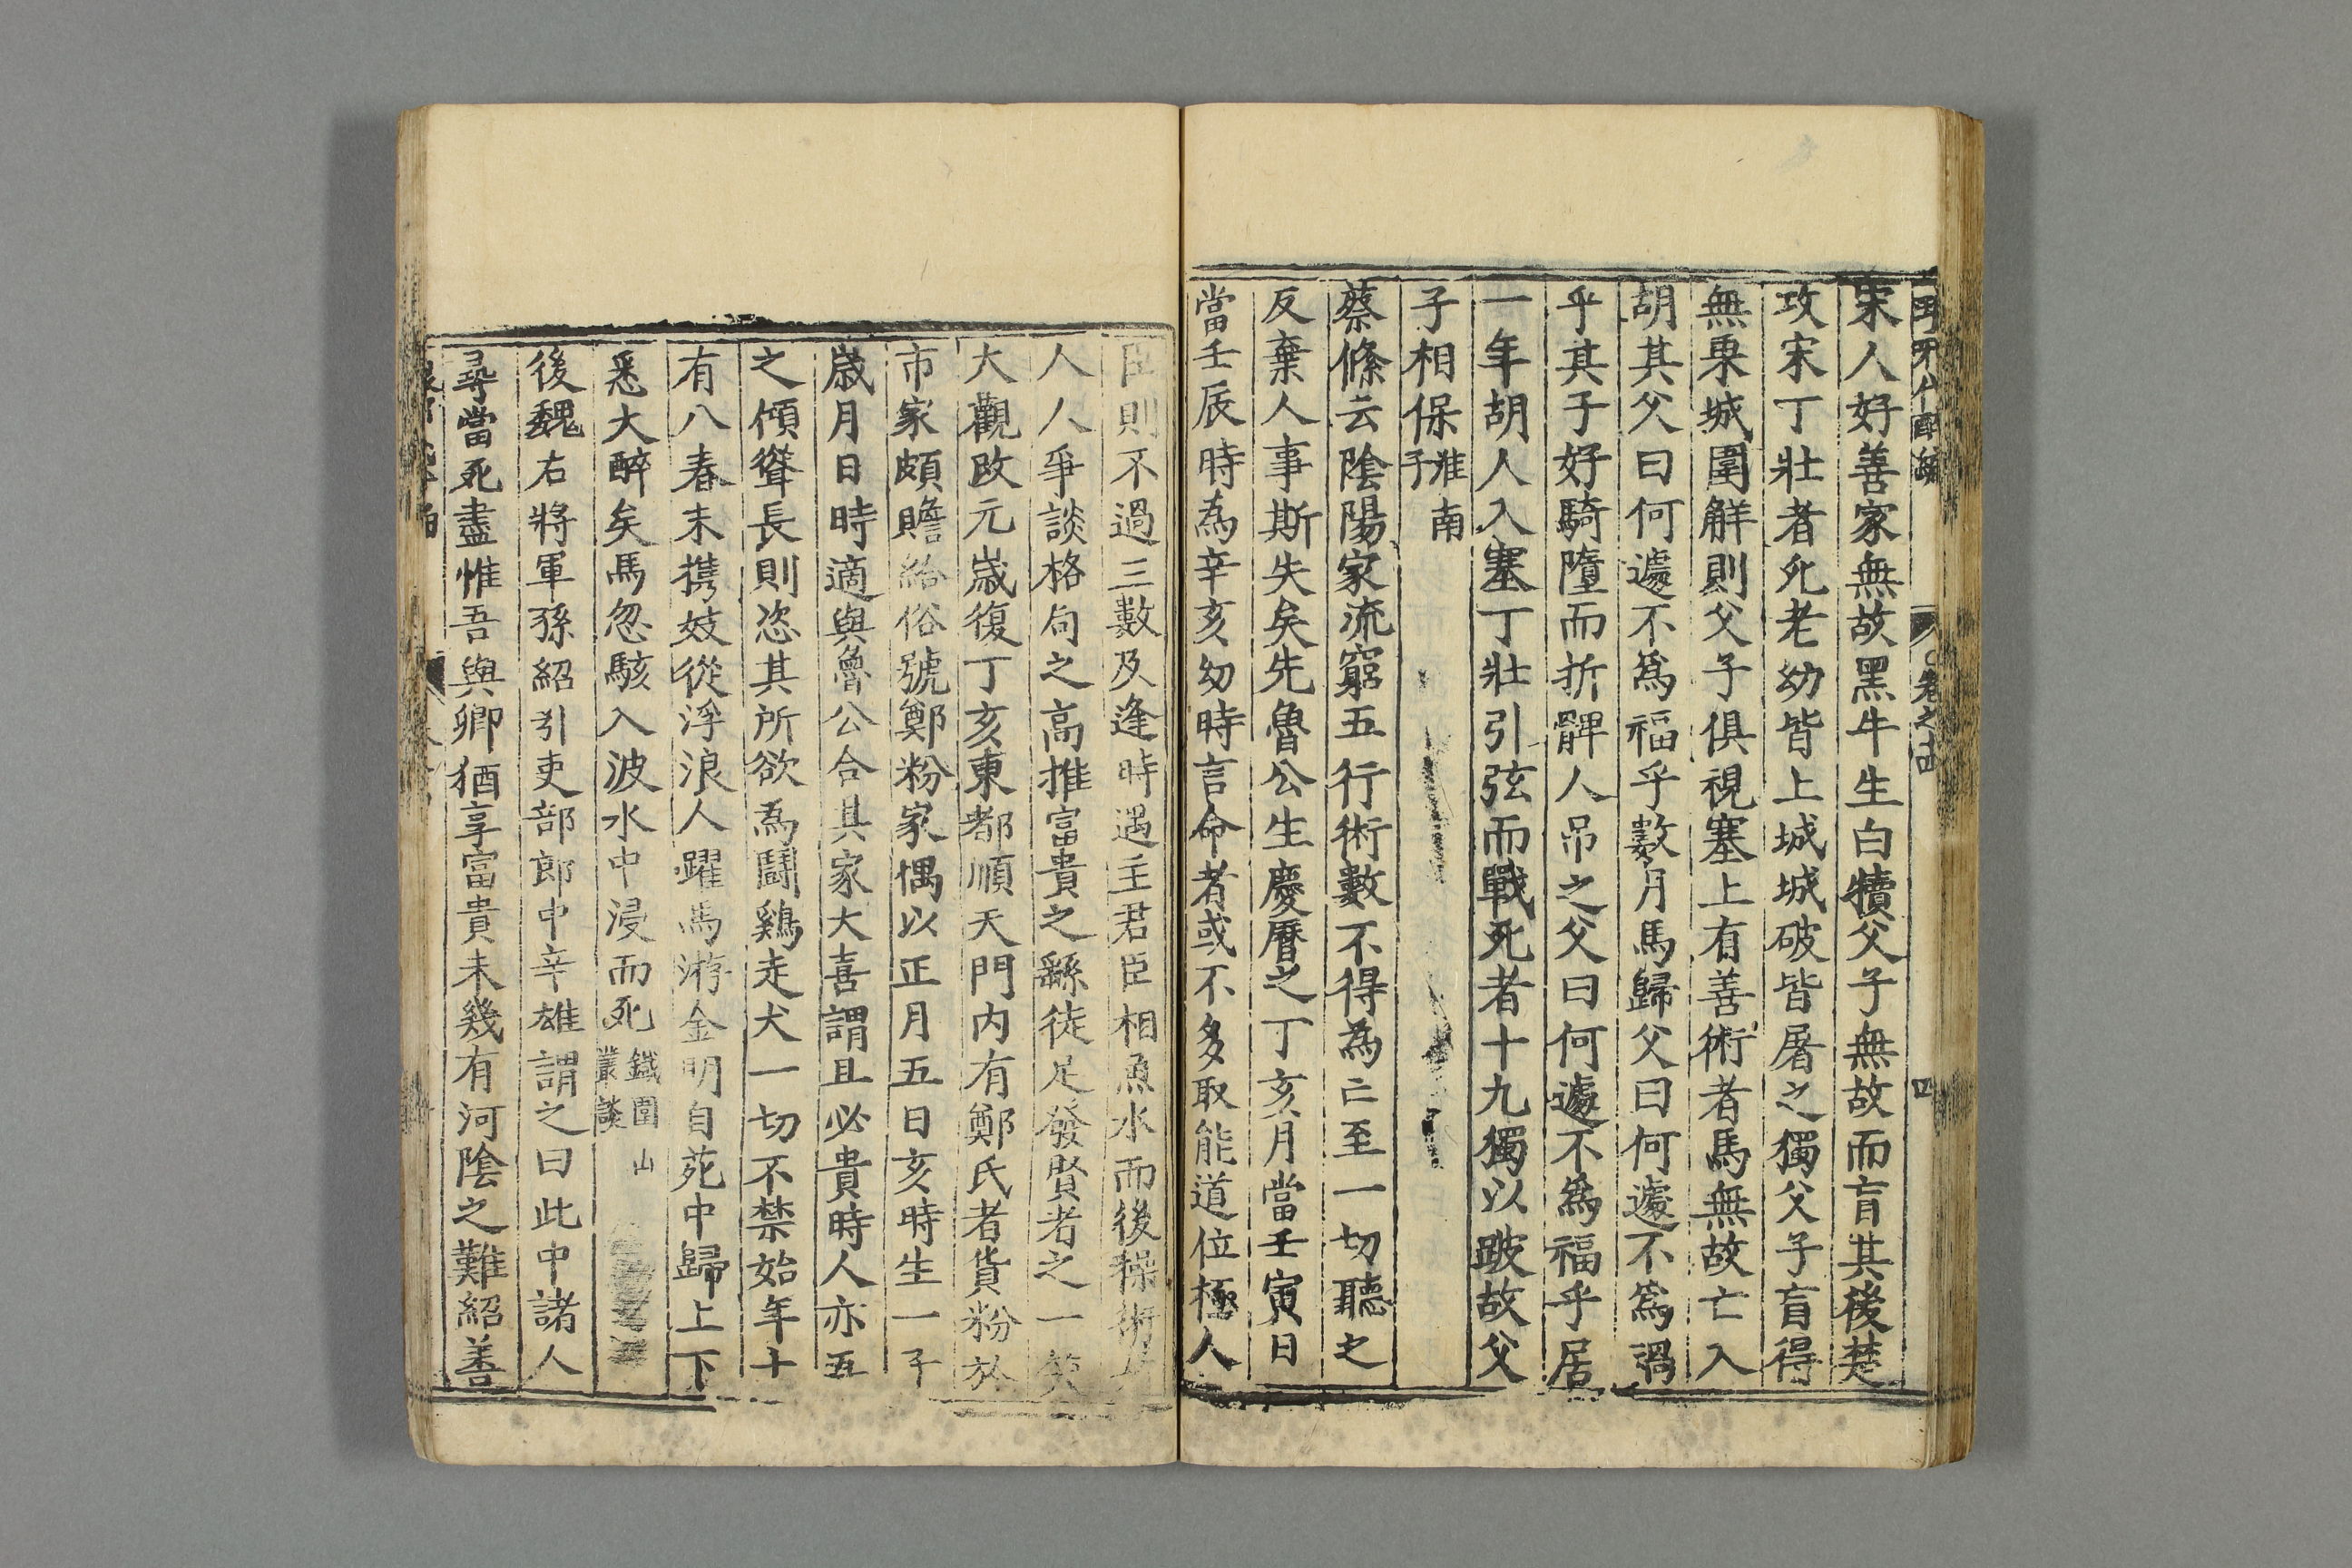 宋人好善家無故黑牛生白犢父子無故而盲其後楚
攻宋丁壯者死老幼皆上城城破皆屠之獨父子盲得
無乘城圍解則父子俱視塞上有善術者馬無故亡入
胡其父曰何遽不爲福乎數月馬歸父曰何遽不爲禍
乎其子好騎墮而折髀人吊之父曰何遽不爲福乎居
一年胡人入塞丁壯引弦而戰死者十九獨以跛故父
子相保淮南子
蔡絛云陰陽家流窮五行術數不得為亡至一切聽之
反棄人事斯失矣先魯公生慶曆之丁亥月當壬寅日
當壬辰時為辛亥幼時言命者或不多取能道位極人
臣則不過三數及逢時遇主君臣相魚水而後操術者
人人爭談格局之高推富貴之繇徒足發賢者之一笑
大觀改元歲復丁亥東都順天門內有鄭氏者貨粉於
市家頗贍給俗號鄭粉家偶以正月五日亥時生一子
歲月日時適與魯公合其家大喜謂且必貴時人亦五
之傾聳長則恣其所欲為鬪鷄走犬一切不禁始年十
有八春末擕妓從浮浪人躍馬游金明自苑中歸上下
悉大醉矣馬忽駭入波水中浸而死鐵圍山叢談
後魏右將軍孫紹引吏部郎中辛雄謂之曰此中諸人
尋當死盡惟吾與卿猶享富貴未幾有河陰之難紹善
卷之
四